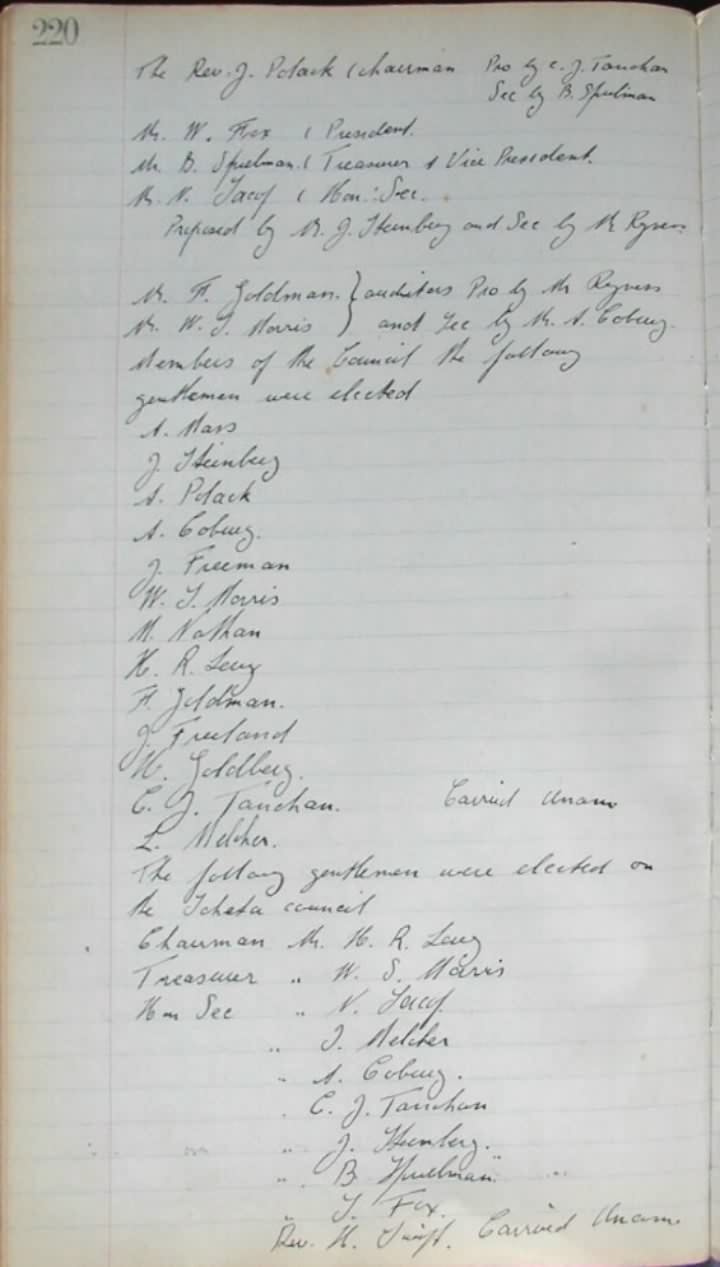 220
The Rev. J. Polack (Chairman Pro by C. J. Tanchan
Sec by B. Spielman
Mr. W. Fox ( President.
Mr. B. Spielman ( Treasurer & Vice President.
Mr. N. Jacoff ( Hon. Sec.
Proposed by Mr. J. Steinberg and Sec by Mr
Mr. F. Goldman } auditors Pro by Mr
Mr. W. S. Morris ) and Sec by Mr. A. Coburg.
Members of the Council the following
gentlemen were elected
A. Mars
J. Steinberg
A. Polack
A. Coburg.
J. Freeman
W. S. Morris
M. Nathan
H. R. Levy
F. Goldman.
J. Freeland
W. Goldberg.
C. J. Tanchan. Carried Unam
L. Melcher.
The following gentlemen were elected on
the council
Chairman Mr. H. R. Levy
Treasurer " W. S. Morris
Hon Sec " N.
" Melcher
" A. Coburg.
" C. J. Tanchan
" J. Steinberg.
" B Spielman
" Fox.
Rev. H. Carried Unam